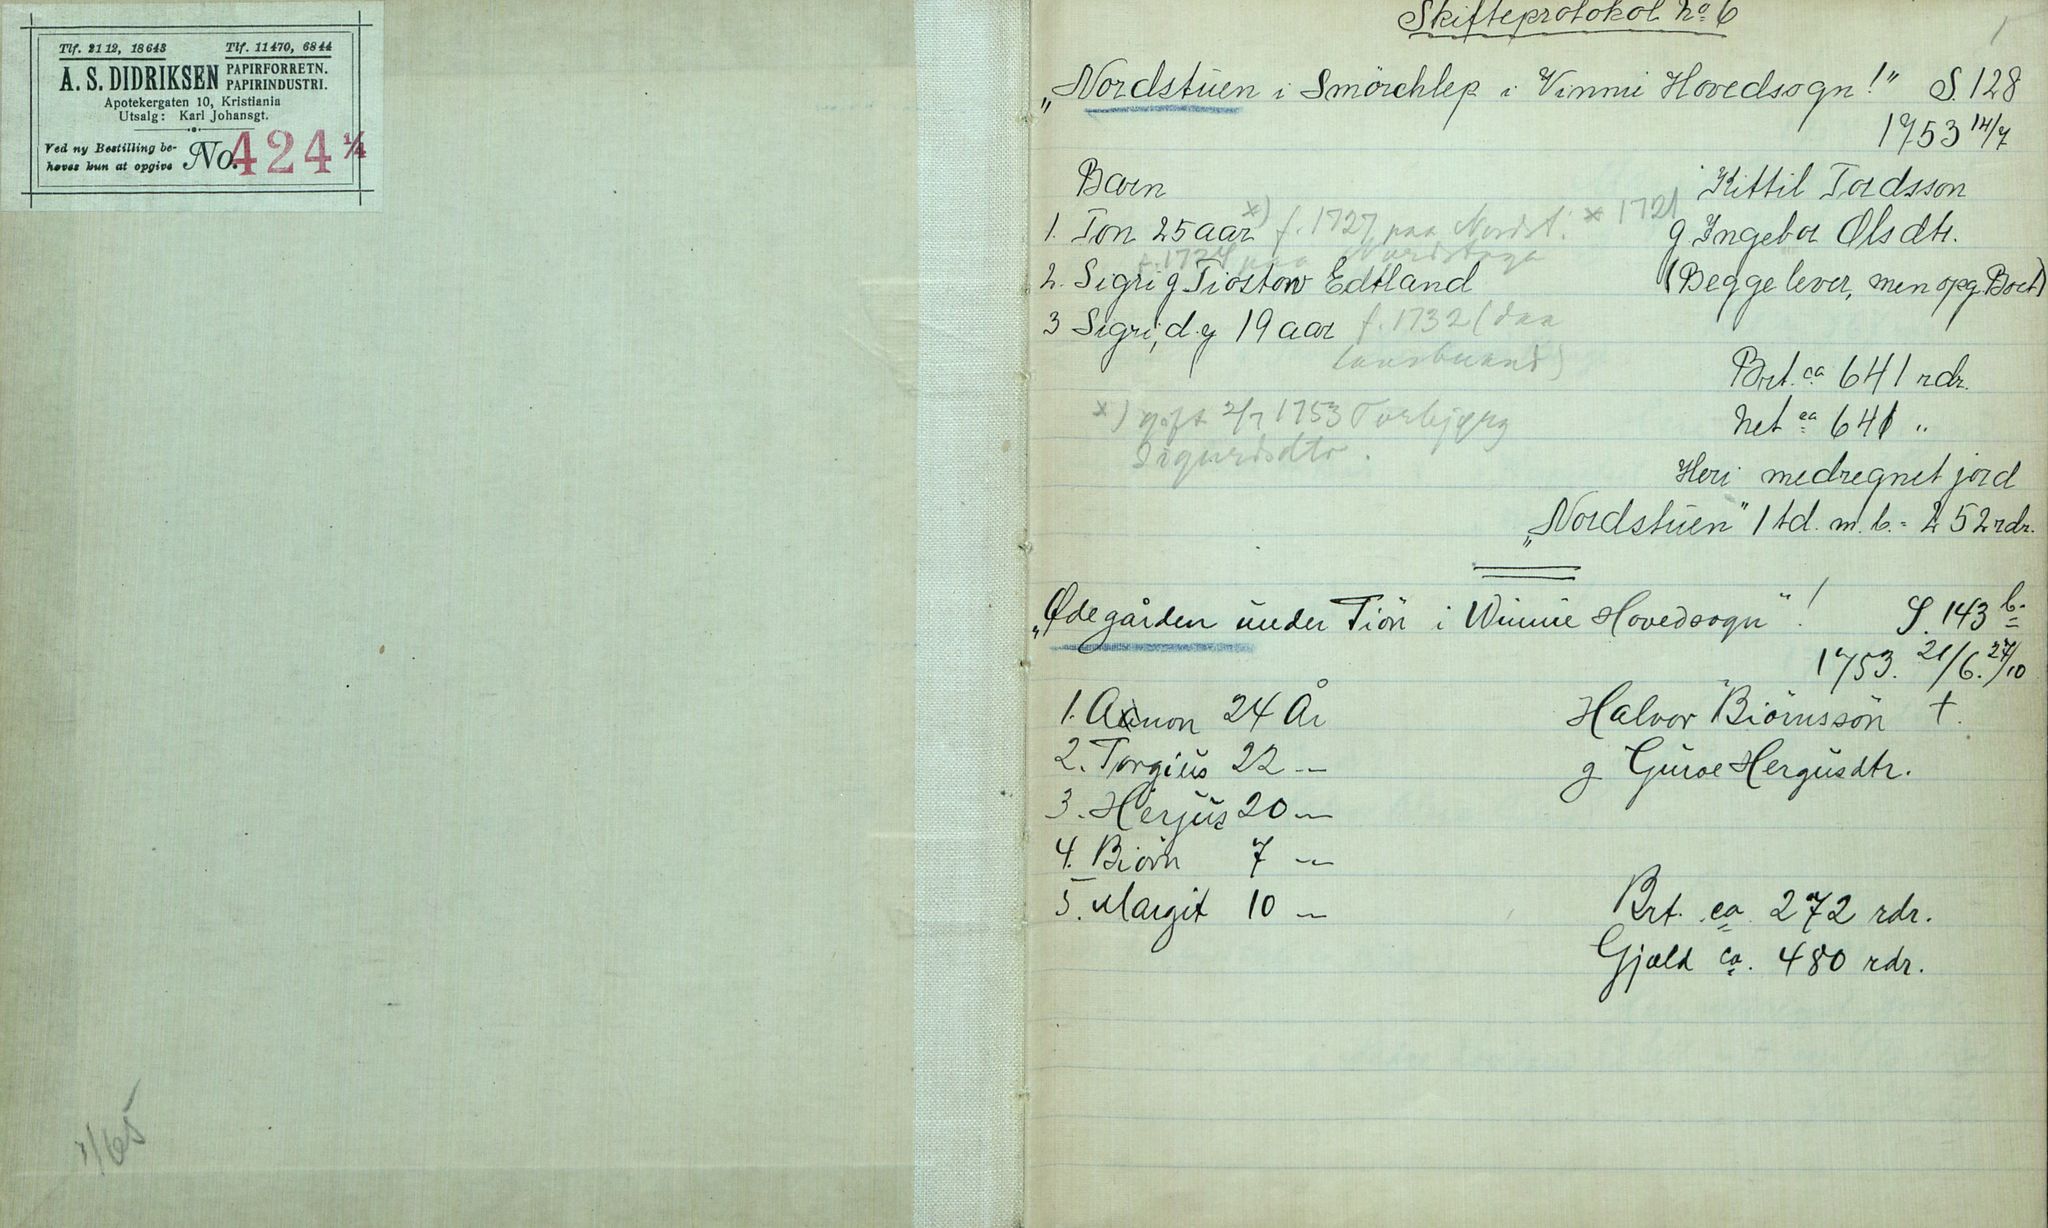 Tlf. 2112, 18643 Tlf. 11470, 6844
A. S. DIDRIKSEN PAPIRFORRETN. PAPIRINDUSTRI.
Apotekergaten 10, Kristiania
Utsalg: Karl Johansgt.
Ved ny Bestilling be-
høves kun at opgive No. 424 1/4
1/65
Skifteprotokol No 6
1
„Nordstuen i Smörchlep i Vinnie Hovedsogn!" S. 128
1753 14/7
Barn Kittil Tordsson
1. Ton 25 aar x) f. 1727 paa Nordst. * 1721 g Ingebor Olsdtr.
f. 1724 paa Nordstoga
2. Sigri g Tiostow Edtland (Begge lever, men opg. Boet)
3 Sigri, d.y 19 aar f. 1732 (daa
Brt. ca 641 rdr.
x) gift 2/7 1753 Torbjørg
Net ca 641 "
Sigurdsdtr.
Heri medregnet jord
„Nordstuen" 1 td. m. b. = 252 rdr.
„Ødegården under Tiön i Winnie Hovedsogn"! S. 143 b.
1753. 21/6. 27/10
1. Aanon 24 År Halvor Biörnssön †.
2. Torgius 22 — g Guroe Hergusdtr.
3. Herjus 20 —
4. Biörn 7 —
5. Margit 10 — Brt. ca. 272 rdr.
Gjæld ca. 480 rdr.